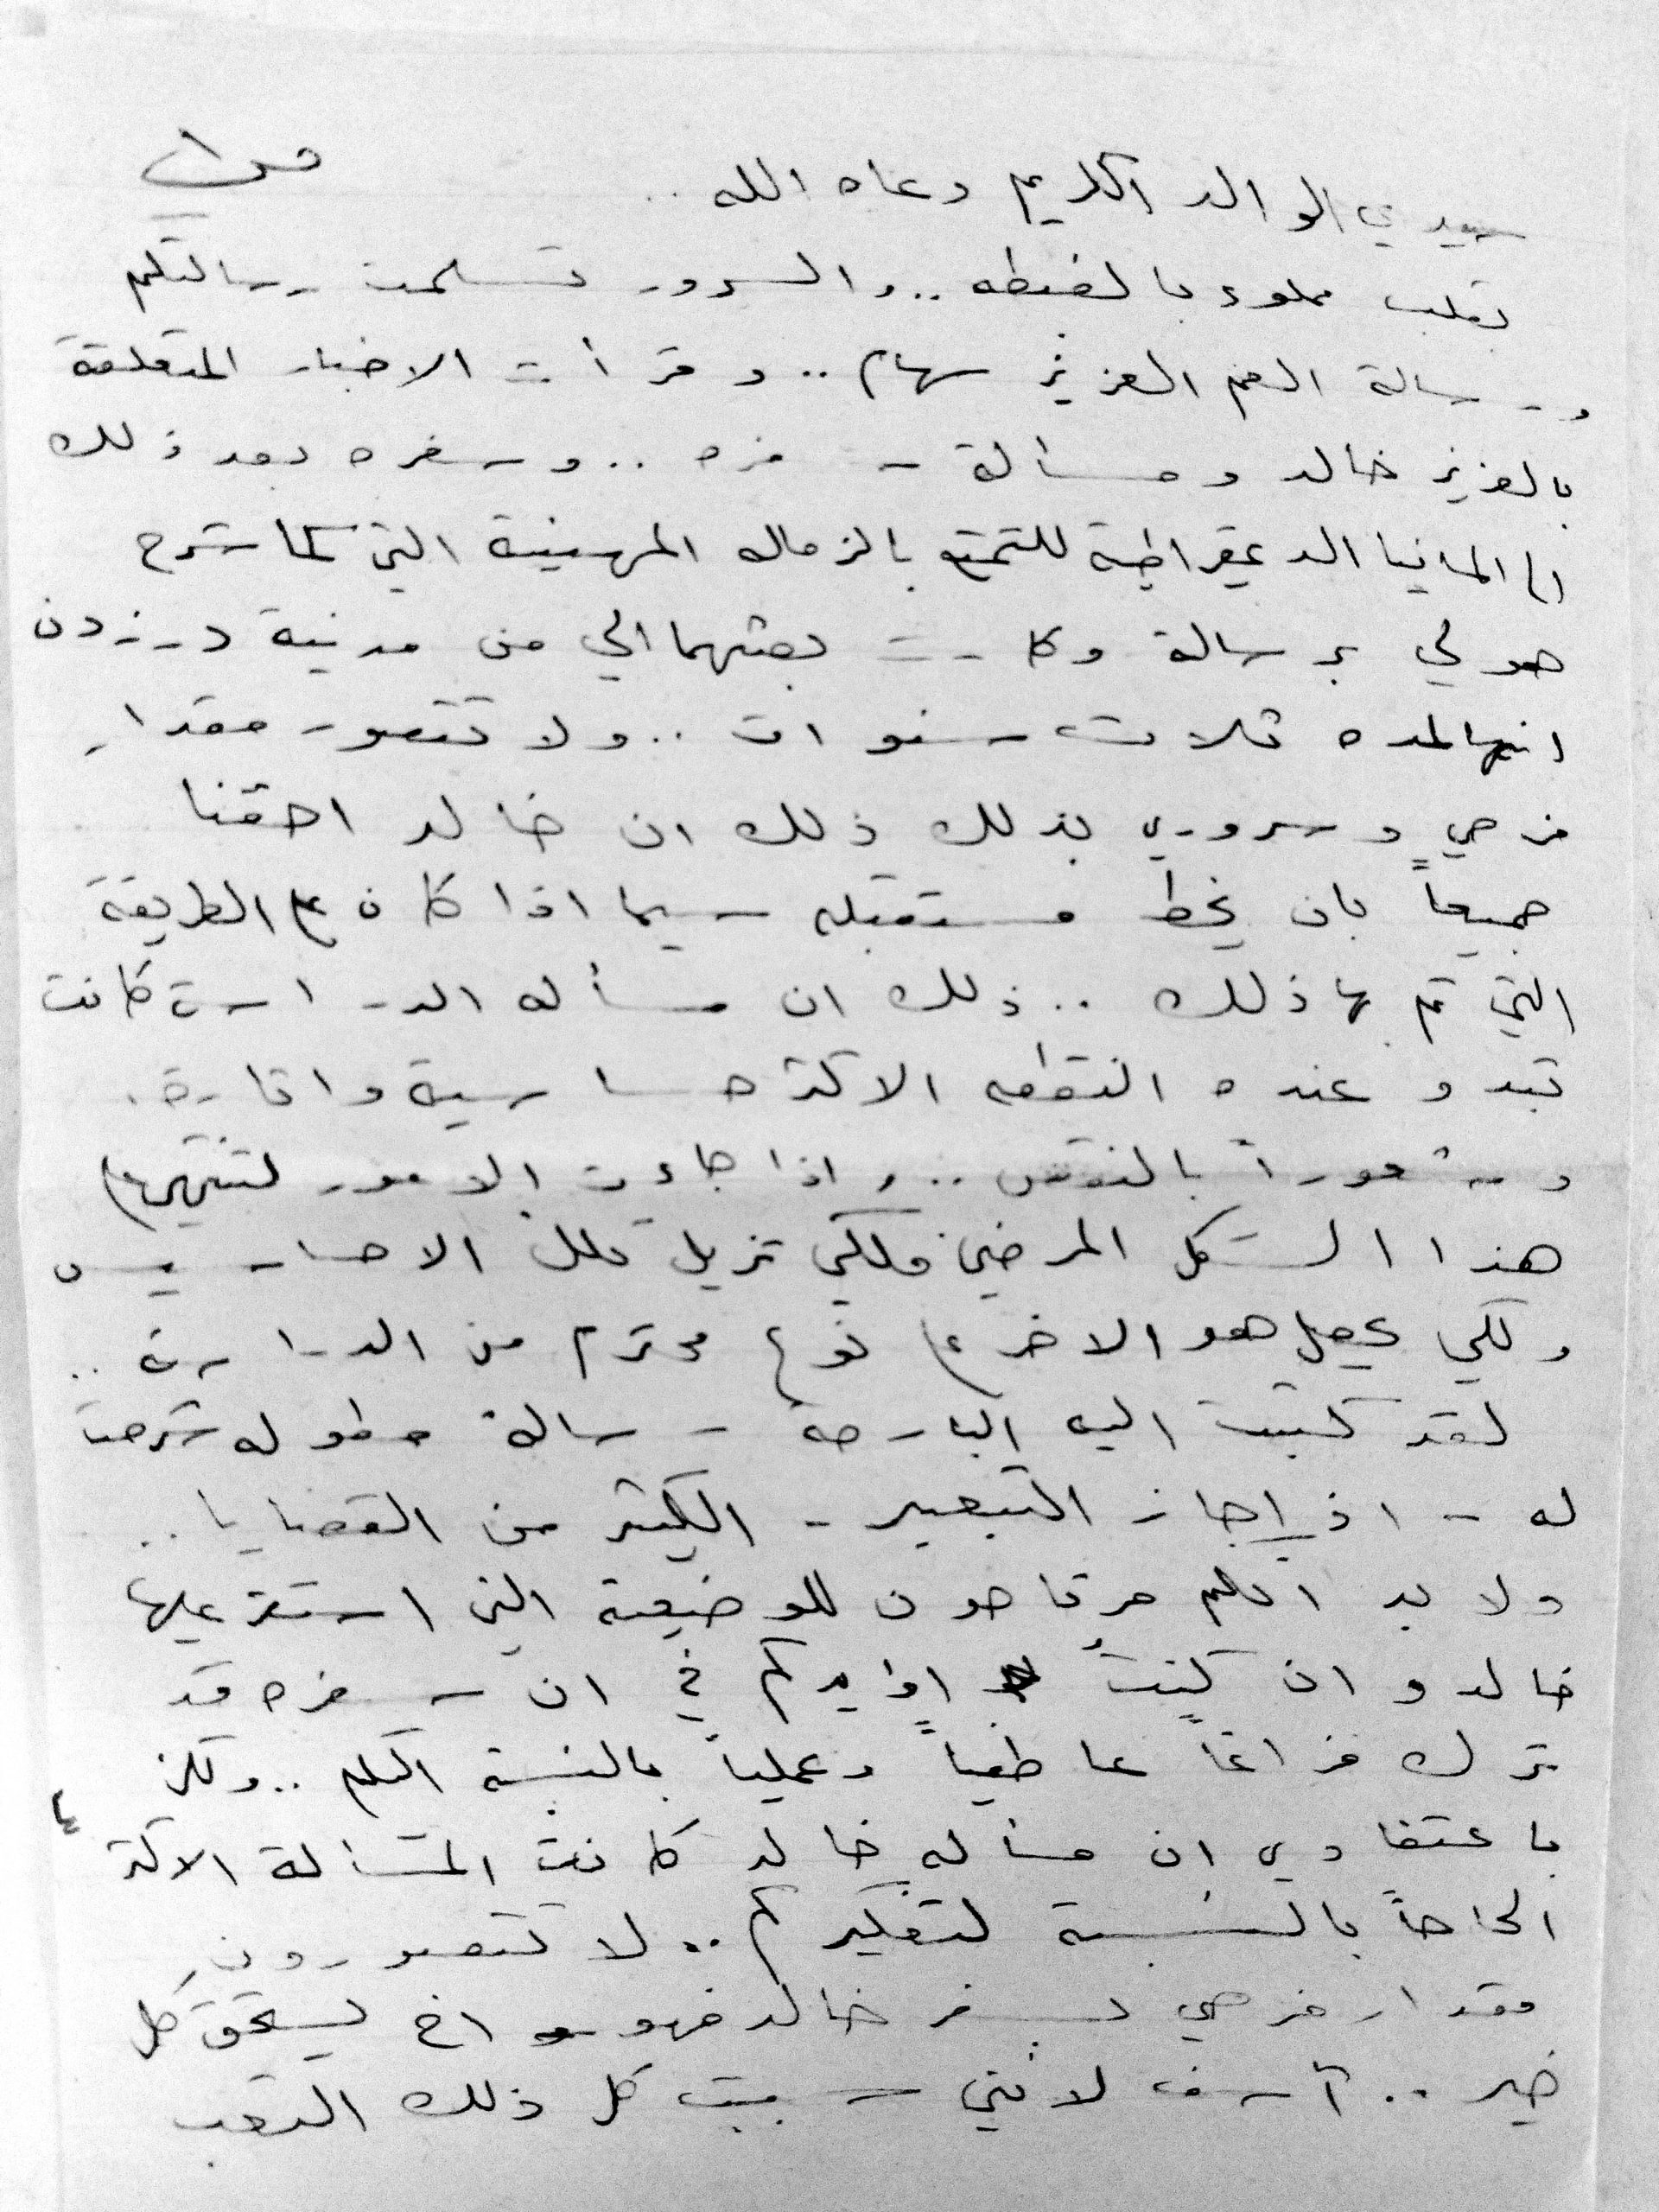 سيدي الوالد الكريم رعاه الله ..
بقلب مملوء بالغبطه .. والسرور تسلمت رسالتكم
ورسالة العم العزيز سهام .. وقرأت الاخبار المتعلقة
بالعزيز خالد ومسألة سفره .. وسفره بعد ذلك
الى المانيا الديمقراطية للتمتع بالزماله المهنية التي كما شرح
هو لي برسالة وكارت بعثهما الي من مدينة درزدن
انها لمده ثلاث سنوات .. ولا تتصور مقدار
فرحي وسروري بذلك ذلك ان خالد احقنا
جميعاً بان يخط مستقبله سيما اذا كان على الطريقة
التي تم بها ذلك .. ذلك ان مسأله الدراسة كانت
تبدو عنده النقطه الاكثر حساسية واثارة
وشعوراً بالنقص .. واذا جاءت الامور لتنتهي على
هذا الشكل المرضي ولكي تزيل تلك الاحاسيس
ولكي يحصل هو الاخر على نوع محترم من الدراسة ..
لقد كتبت اليه البارحة رسالة مطوله شرحت
له - اذا جاز التعبير - الكثير من القضايا ..
ولا بد انكم مرتاحون للوضعية التي استقر عليها
خالد وان كنتُ اؤيدكم في ان سفره قد
ترك فراغاً عاطفياً وعملياً بالنسبة اليكم .. ولكن
باعتقادي ان مسأله خالد كانت المسألة الاكثر
الحاحاً بالنسبة لتفكيركم .. لا تتصورون
مقدار فرحي بسفر خالد فهو اخ يستحق كل
خير .. آسف لانني سببت كل ذلك التعب